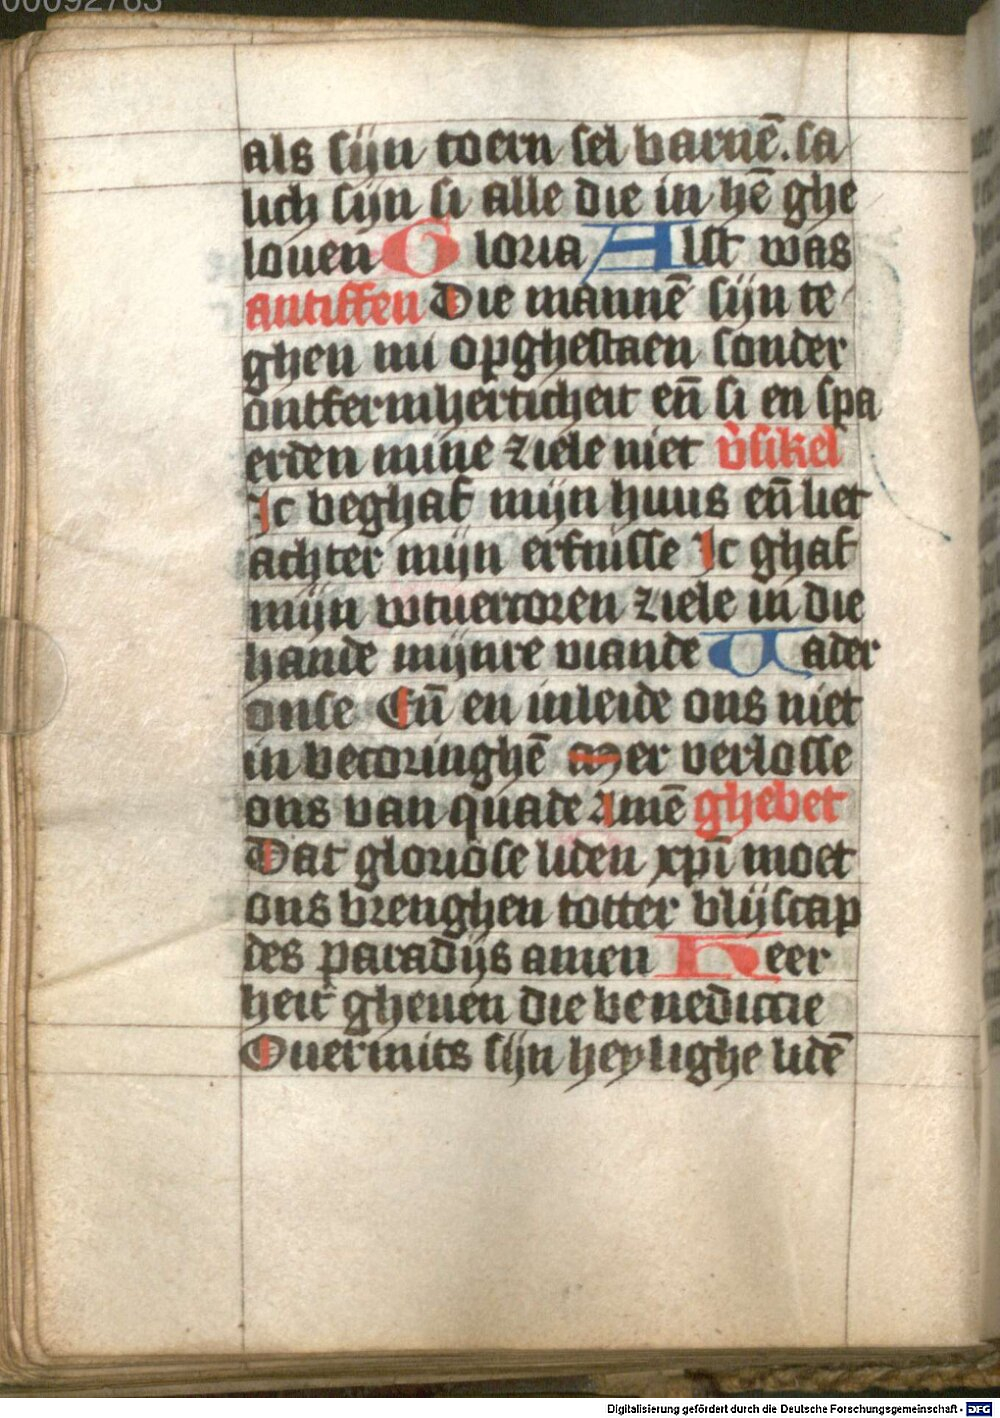 00092763
als sijn toern sel barnē. sa
lich sijn si alle die in hē ghe
louen Gloria Alst was
antiffen Die mannē sijn te
ghen mi opghestaen sonder
ontfermherticheit en̄ si en spa
erden mine ziele niet v̉sikel
Ic beghaf mijn huus en̄ liet
achter mijn erfnisse Ic ghaf
mijn wtuercoren ziele in die
hande mijnre viande Uader
onse En̄ en inleide ons niet
in becoringhē Mer verlosse
ons van quade Amē ghebet
Dat gloriose liden xp̄i moet
ons brenghen totter blijscap
des paradijs amen Heer
heit gheuen die benedictie
Ouermits sijn heylighe lidē
Digitalisierung gefördert durch die Deutsche Forschungsgemeinschaft - DFG